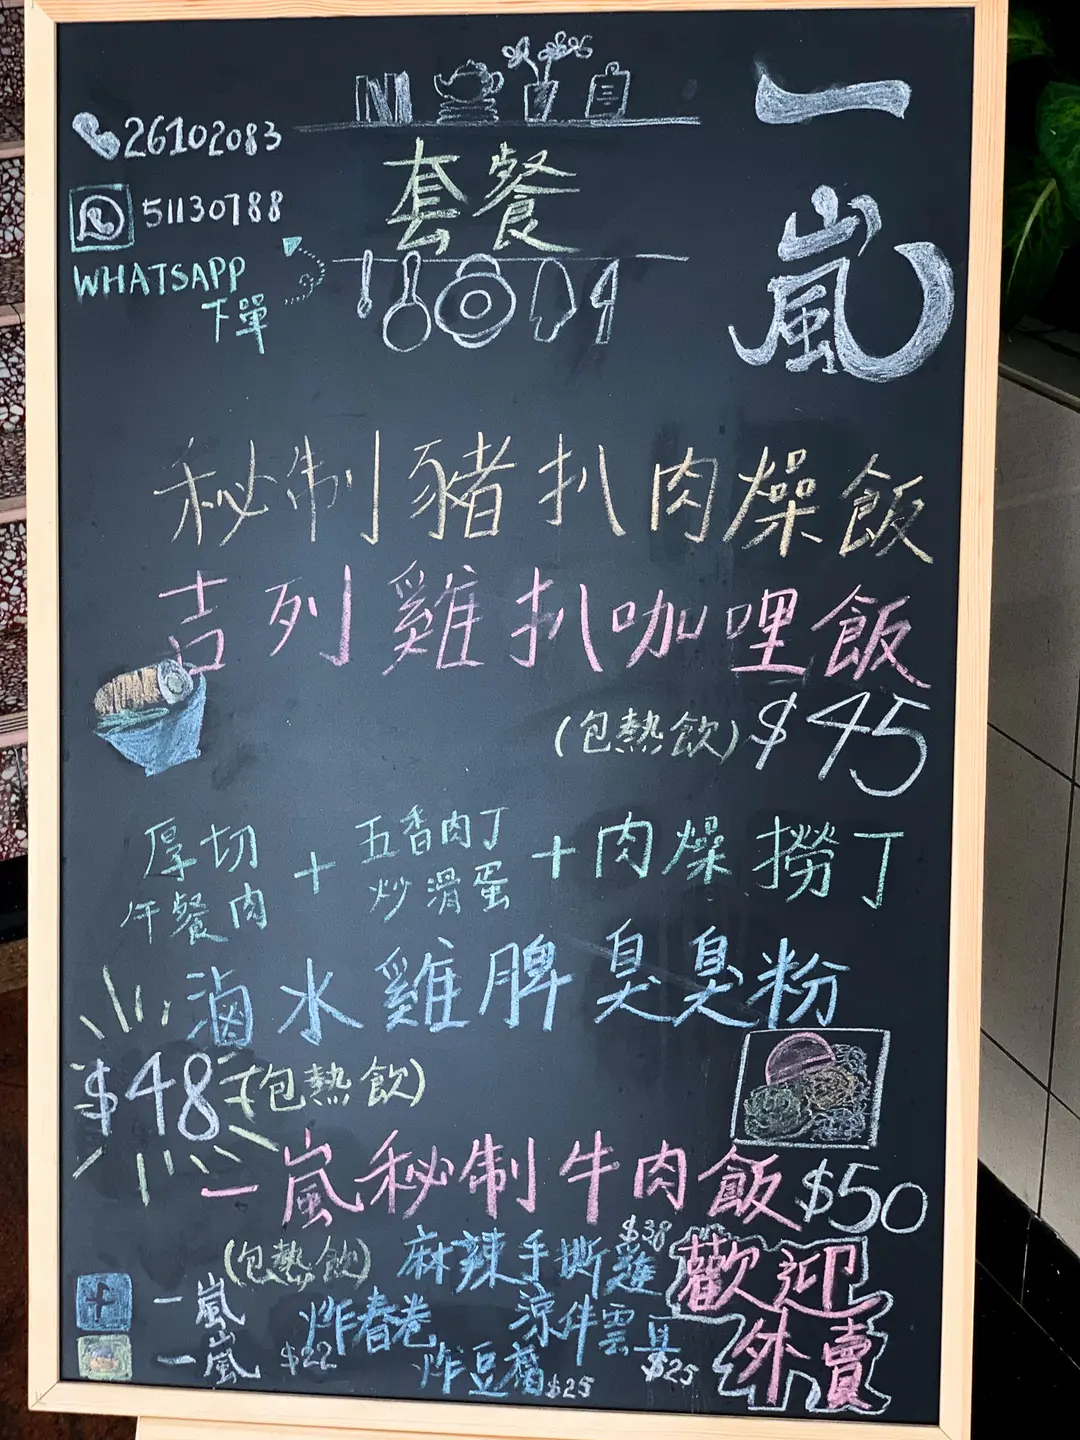 一嵐
26102083
51130788
WHATSAPP
下單
套餐
秘制豬扒肉燥飯
吉列雞扒咖哩飯
(包熱飲) $45
厚切午餐肉 + 五香肉丁炒滑蛋 + 肉燥撈丁
滷水雞脾臭臭粉
$48 (包熱飲)
一嵐秘制牛肉飯 $50
(包熱飲)
麻辣手撕雞 $38
炸春卷 $22
涼伴雲耳 $25
炸豆腐 $25
歡迎
外賣
一嵐
一嵐